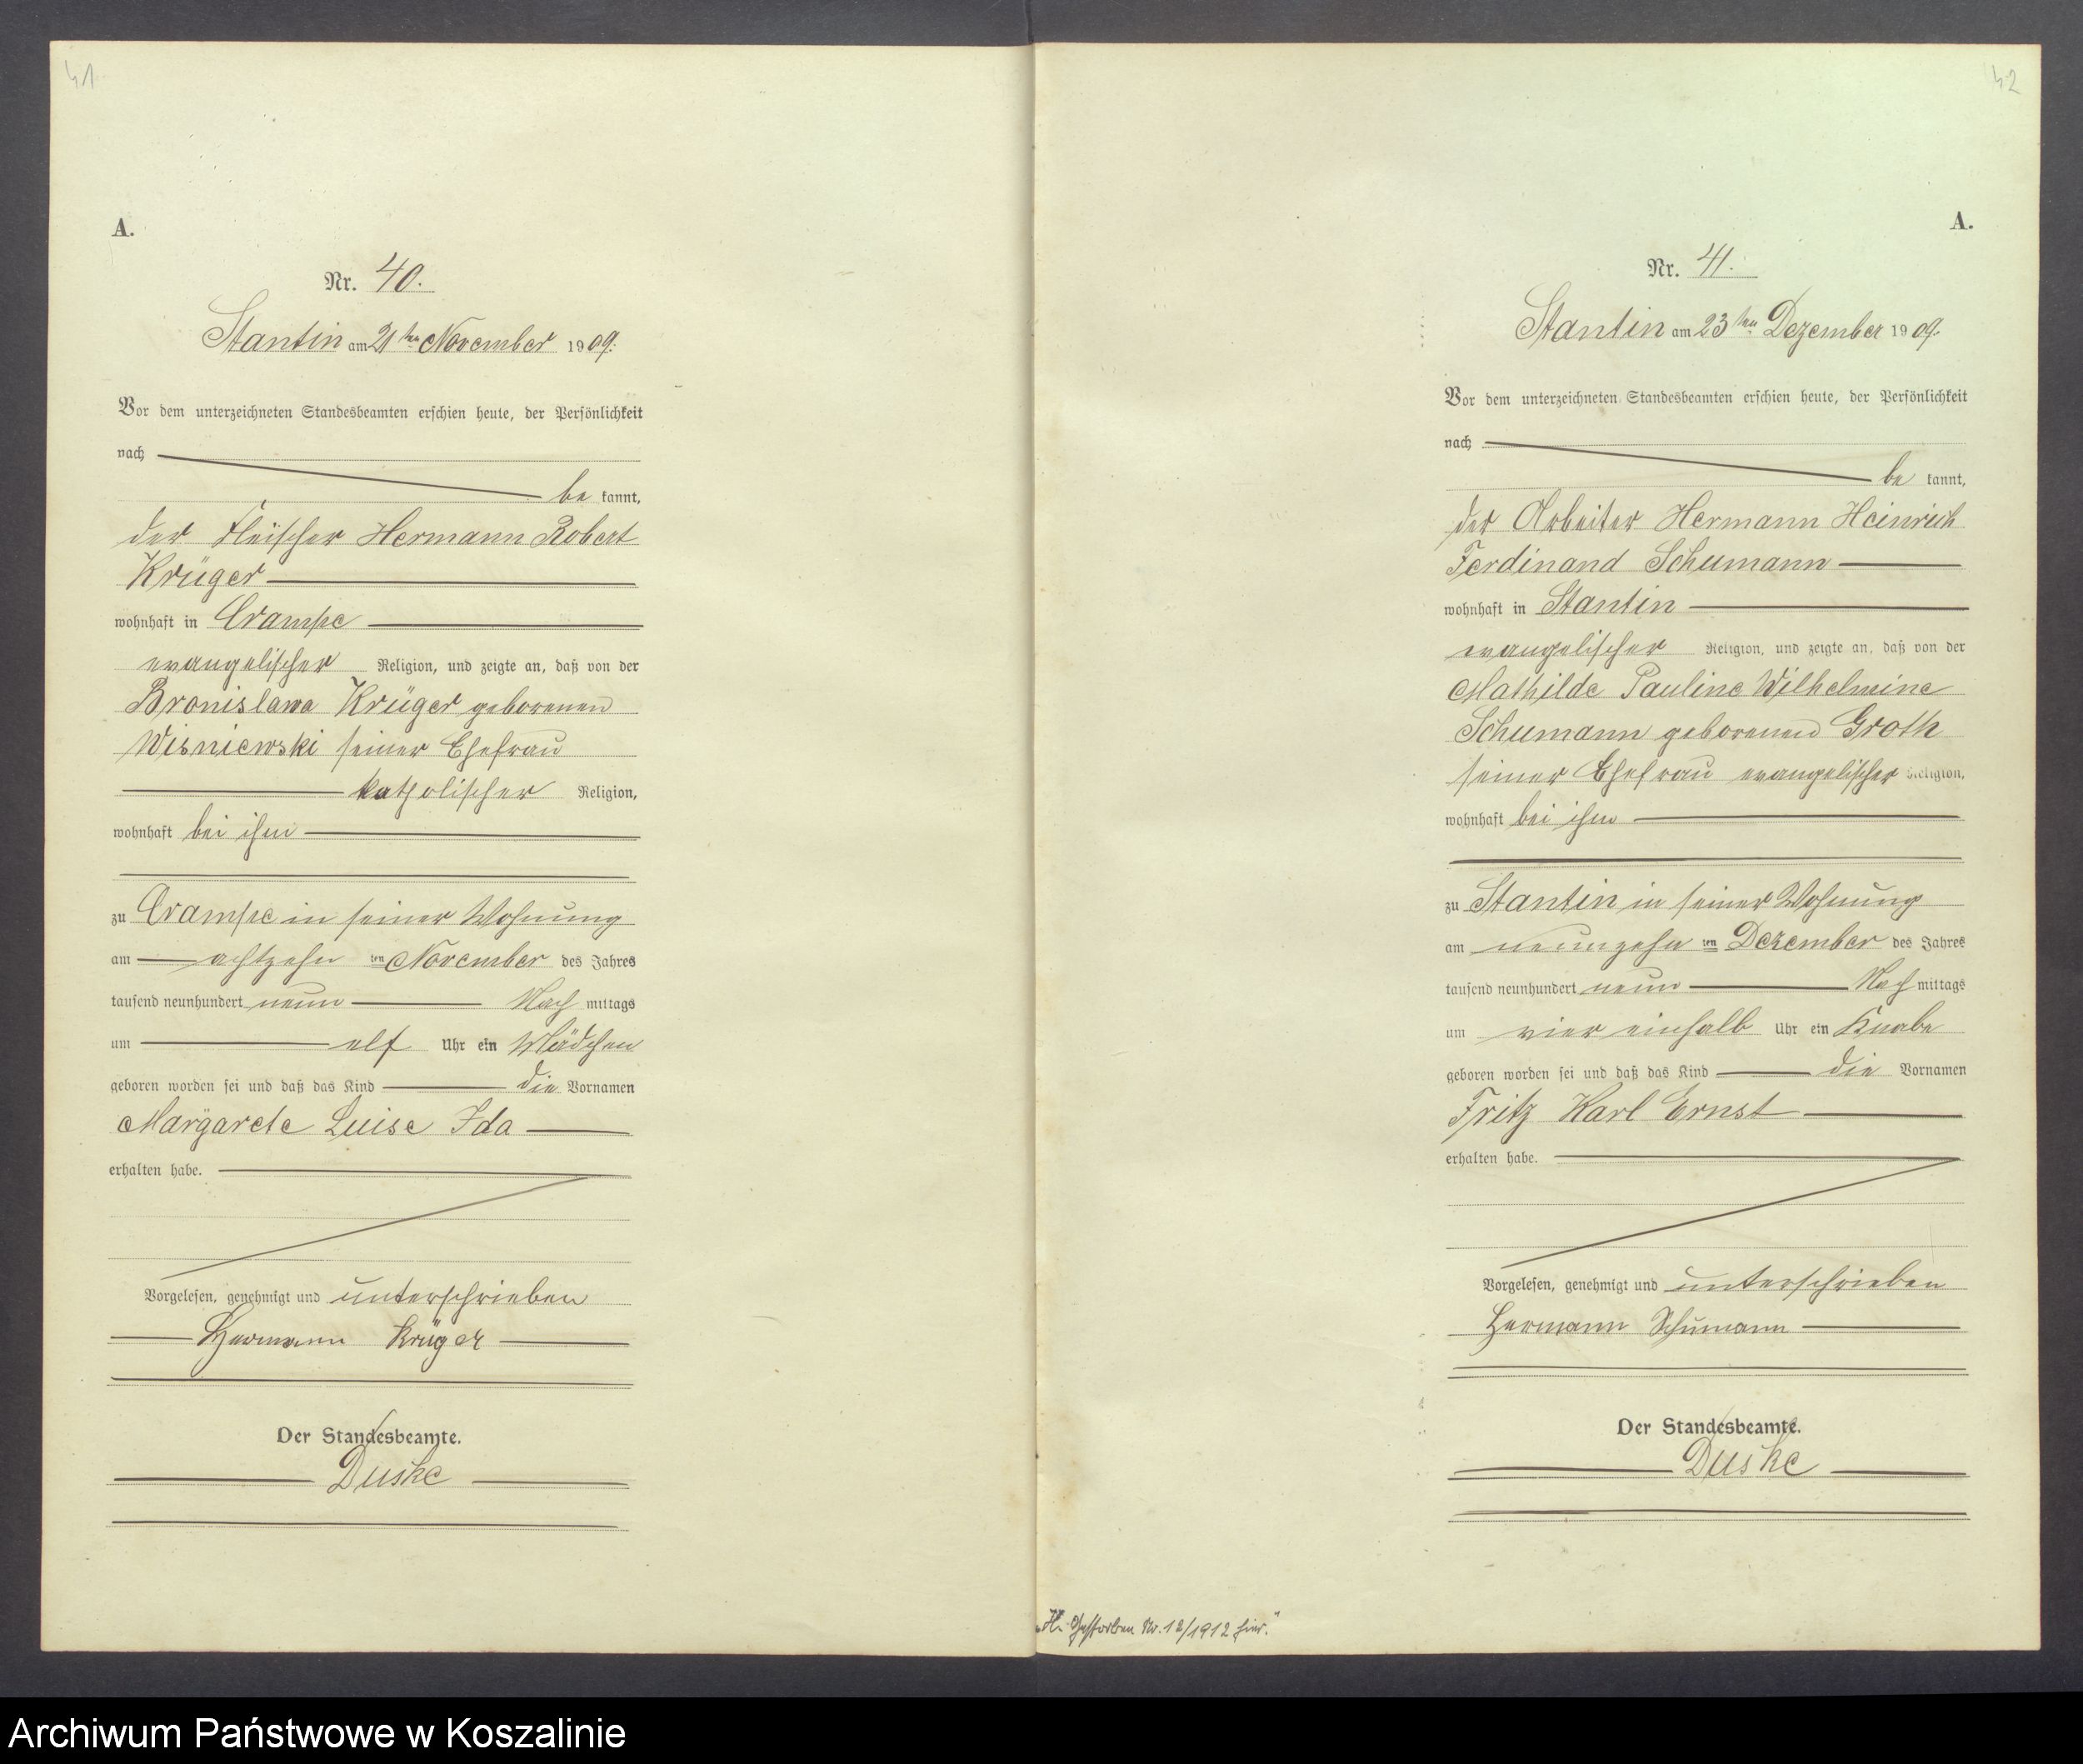 41
A.
Nr. 40.
Stantin am 21ten November 1909.
Vor dem unterzeichneten Standesbeamten erschien heute, der Persönlichkeit
nach
be kannt,
der Fleischer Hermann Robert
Krüger
wohnhaft in Crampe
evangelischer Religion, und zeigte an, daß von der
Bronislawa Krüger geborenen
Wisniewski seiner Ehefrau
katholischer Religion,
wohnhaft bei ihm
zu Crampe in seiner Wohnung
am achtzehn ten November des Jahres
tausend neunhundert neun Nach mittags
um elf Uhr ein Mädchen
geboren worden sei und daß das Kind die Vornamen
Margarete Luise Ida
erhalten habe.
Vorgelesen, genehmigt und unterschrieben
Hermann Krüger
Der Standesbeamte.
Duske
42
A.
Nr. 41.
Stantin am 23ten Dezember 1909.
Vor dem unterzeichneten Standesbeamten erschien heute, der Persönlichkeit
nach
be kannt,
der Arbeiter Hermann Heinrich
Ferdinand Schumann
wohnhaft in Stantin
evangelischer Religion, und zeigte an, daß von der
Mathilde Pauline Wilhelmine
Schumann geborenen Groth
seiner Ehefrau evangelischer Religion,
wohnhaft bei ihm
zu Stantin in seiner Wohnung
am neunzehn ten Dezember des Jahres
tausend neunhundert neun Nach mittags
um vier einhalb Uhr ein Knabe
geboren worden sei und daß das Kind die Vornamen
Fritz Karl Ernst
erhalten habe.
Vorgelesen, genehmigt und unterschrieben
Hermann Schumann
Der Standesbeamte.
Duske
„H. Gestorben Nr. 12/1912 hier."
Archiwum Państwowe w Koszalinie